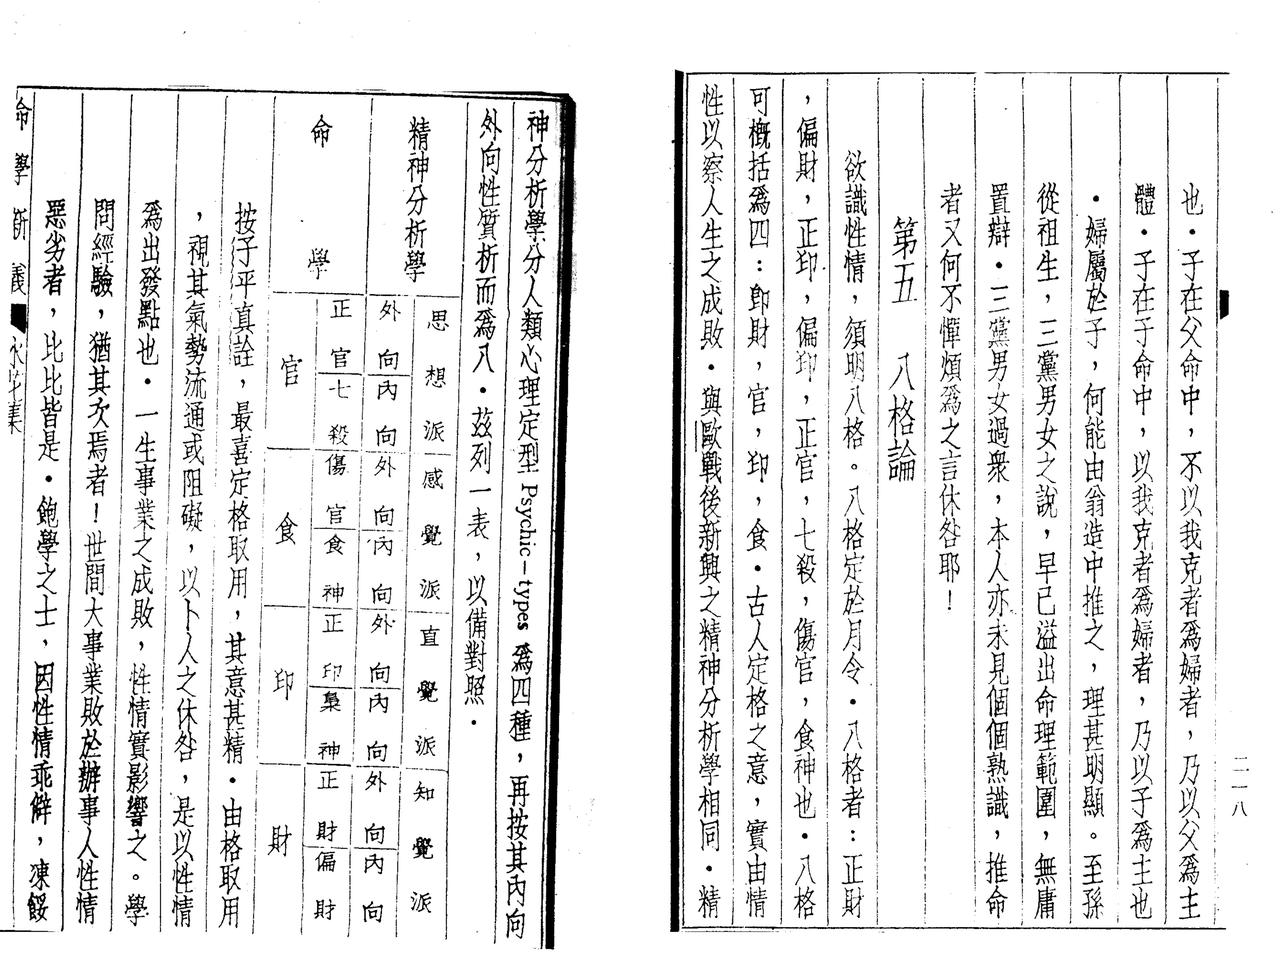 也．子在父命中，不以我克者爲婦者，乃以父爲主
體．子在子命中，以我克者爲婦者，乃以子爲主也
．婦屬於子，何能由翁造中推之，理甚明顯。至孫
從祖生，三黨男女之說，早已溢出命理範圍，無庸
置辯．三黨男女過衆，本人亦未見個個熟識，推命
者又何不憚煩爲之言休咎耶！
第五　八格論
欲識性情，須明八格。八格定於月令．八格者：正財
，偏財，正印，偏印，正官，七殺，傷官，食神也．八格
可概括爲四：卽財，官，印，食．古人定格之意，實由情
性以察人生之成敗．與歐戰後新興之精神分析學相同．精
二一八
神分析學分人類心理定型 Psychic-types 爲四種，再按其內向
外向性質析而爲八．茲列一表，以備對照．
精神分析學
思想派　感覺派　直覺派　知覺派
外向　內向　外向　內向　外向　內向　外向　內向
命學
正官　七殺　傷官　食神　正印　梟神　正財　偏財
官　食　印　財
按子平眞詮，最喜定格取用，其意甚精．由格取用
，視其氣勢流通或阻礙，以卜人之休咎，是以性情
爲出發點也．一生事業之成敗，性情實影響之。學
問經驗，猶其次焉者！世間大事業敗於辦事人性情
惡劣者，比比皆是．飽學之士，因性情乖僻，凍餒
命學新義
水花集